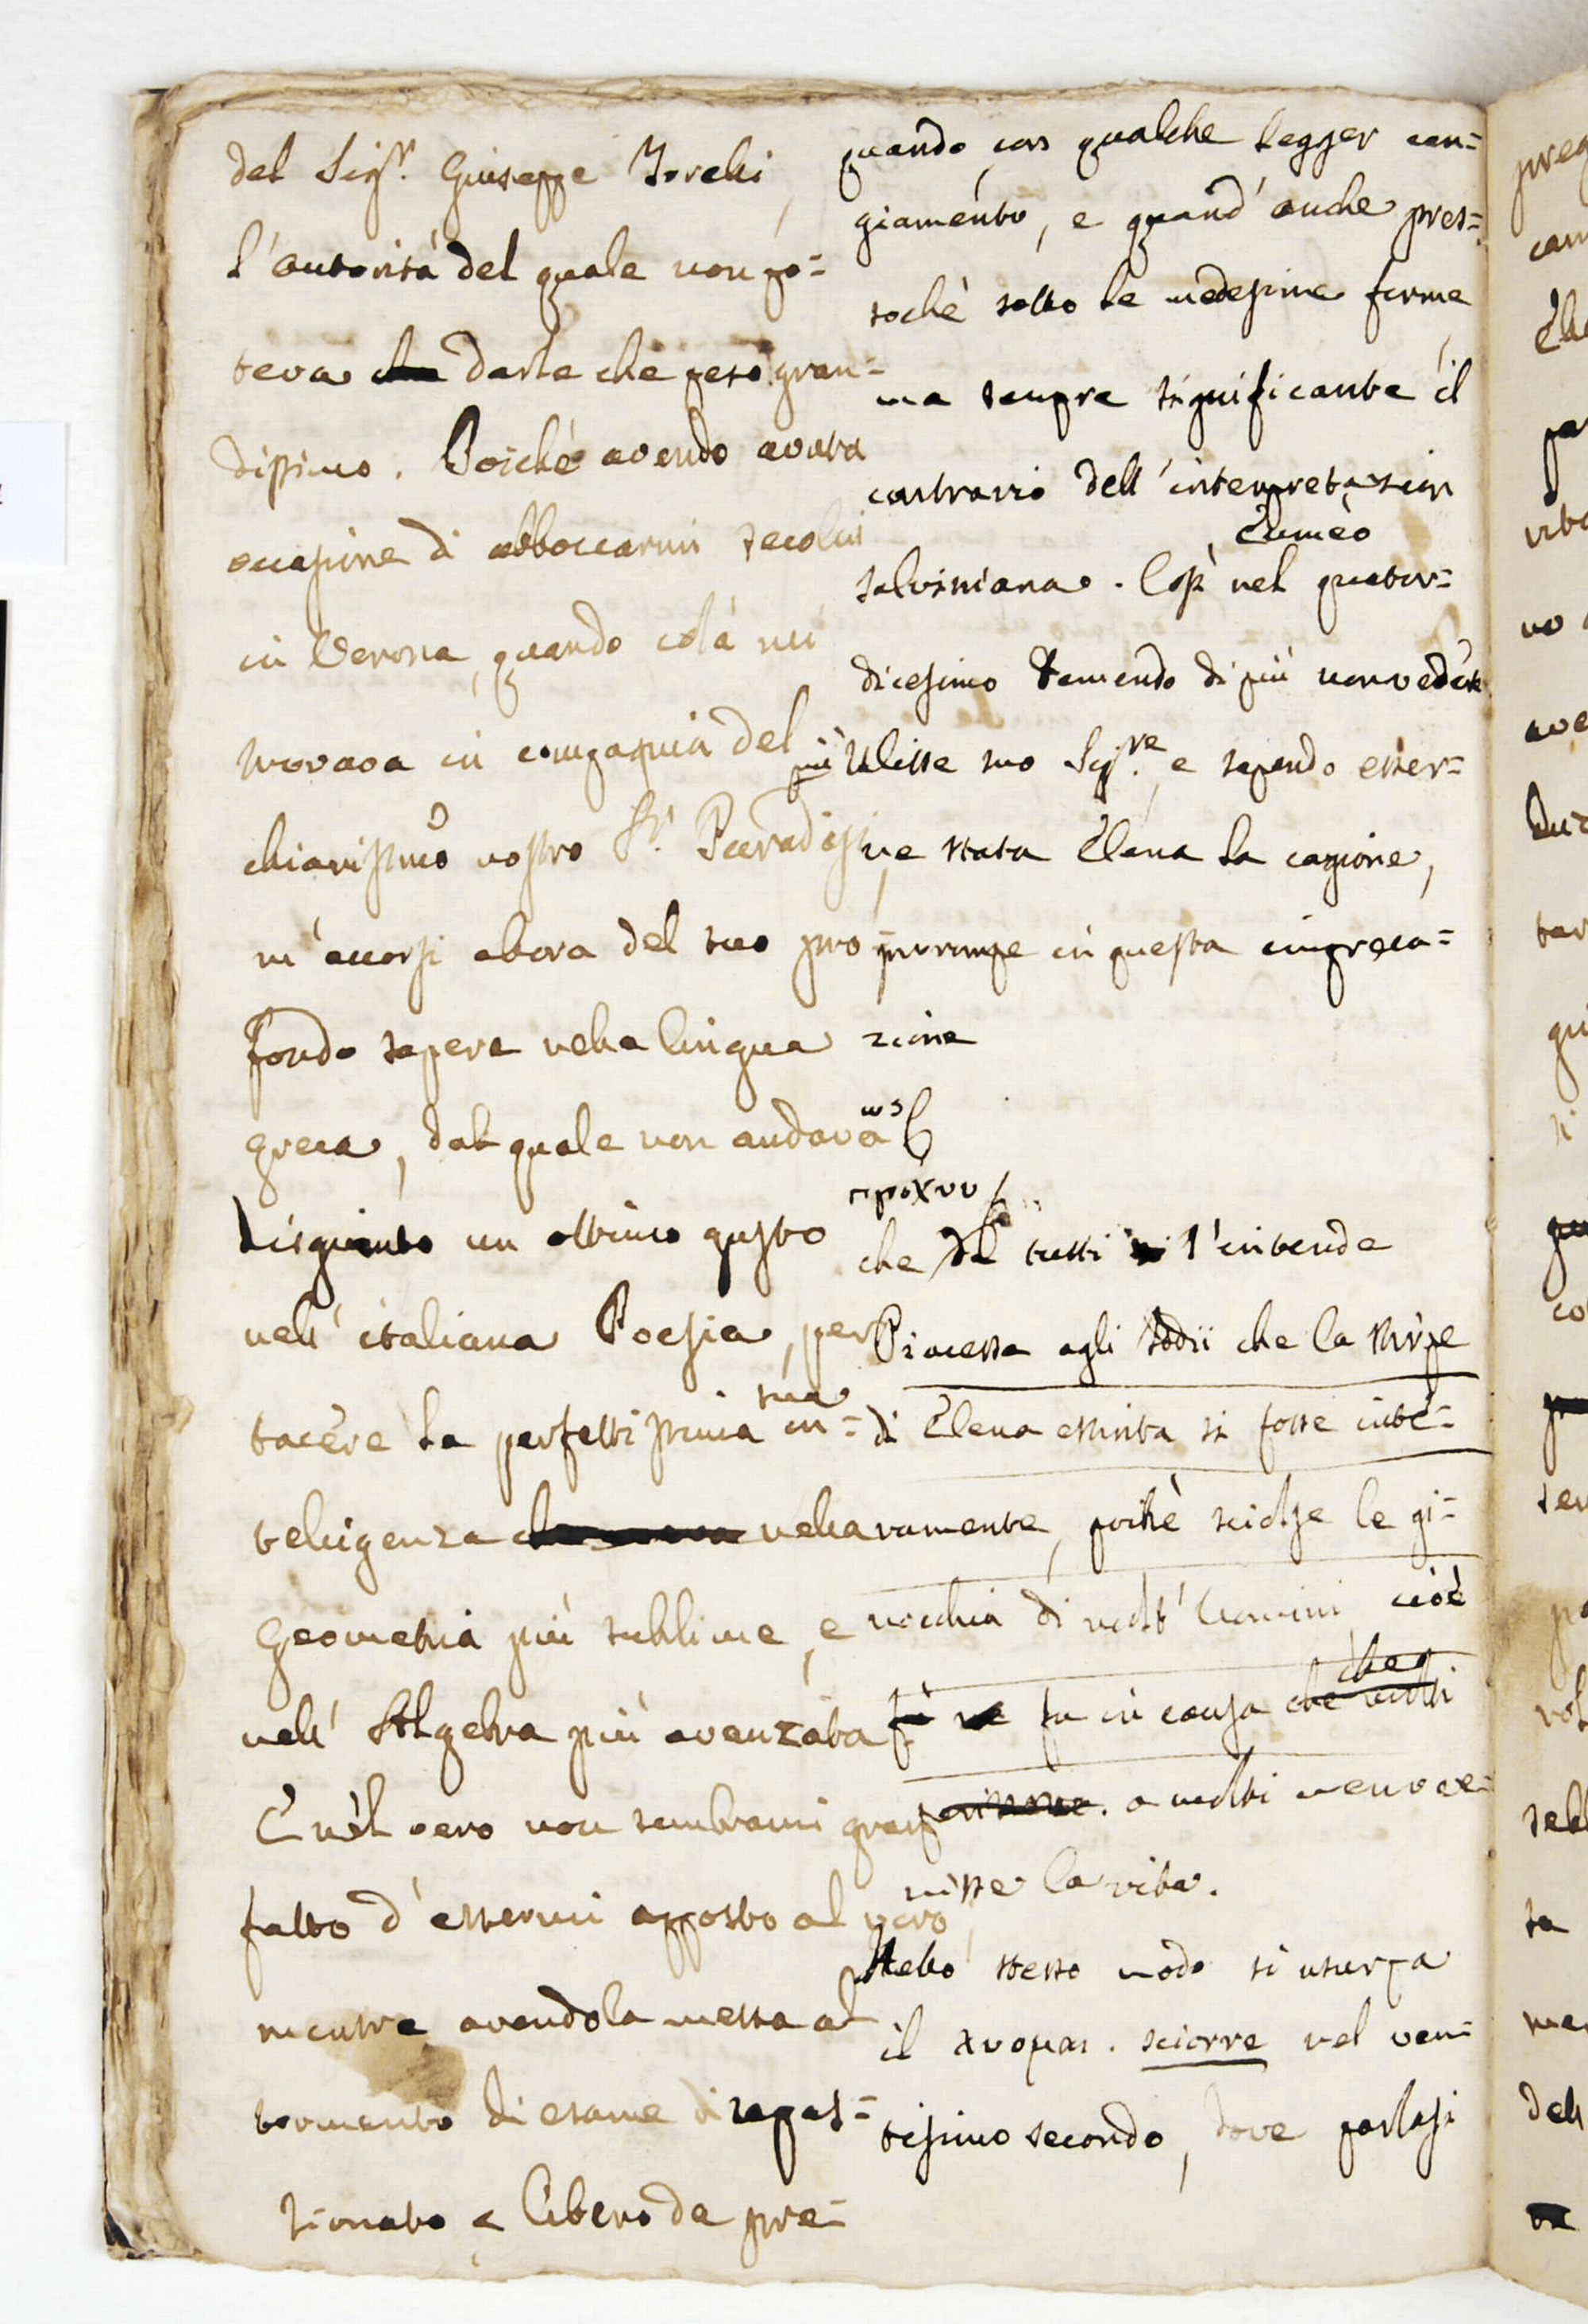 del Sig.r Giuseppe Torelli,
l'autorità del quale non po=
teva darle che peso gran=
dissimo. Poichè avendo avuta
occasione di abboccarmi secolui
in Verona, quando colà mi
trovava in compagnia del
chiarissimo nostro Sr. Paradisi,
m'accorsi allora del suo pro=
fondo sapere nella lingua
greca, dal quale non andava
disgiunto un ottimo gusto
nell'italiana Poesia, per
tacère la perfettissima sua in=
telligenza nella
Geometria più sublime, e
nell'Algebra più avanzata
E nèl vero non sembrami gran
fatto d'essermi apposto al vero
mentre avendola messa al
tormento di esame dispas=
sionato e libero da pre=
quando con qualche legger can=
giamento, e quand'anche pres=
sochè sotto le medesime forme
ma sempre significante il
contrario dell'interpretazion
salviniana. Così nel quator= Eumèo
dicesimo temendo di più non vedere
più Ulisse suo Sig.re e sapendo esser=
ne stata Elena la cagione,
prorompe in questa impreca=
zione
ως
πρόχνυ
che tutti l'intende
Piacesse agli Iddii che la stirpe
di Elena estinta si fosse inte=
ramente, poichè sciolse le gi=
nocchia di molt'Uomini cioè
fu in causa che
a molti venoce=
nisse la vita.
Nello stesso modo si usurpa
il λυομαι. sciorre nel ven=
tisimo secondo, dove parlasi